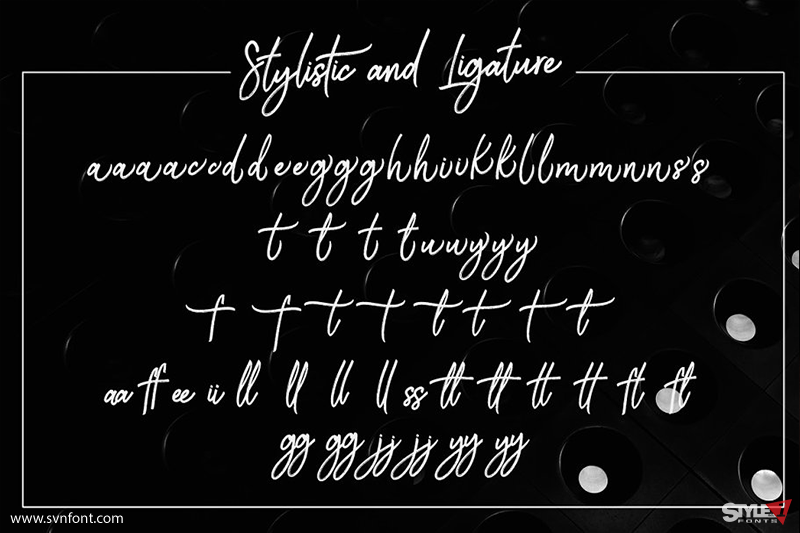 Stylistic and Ligature
aaaaccddeeggghhiikkllmmnnss
t t t tuuyyy
f f t t t t t t
aa ff ee ii ll ll ll ll ss tt tt tt tt ft ft
gg gg jj jj yy yy
www.svnfont.com
STYLE
FONTS